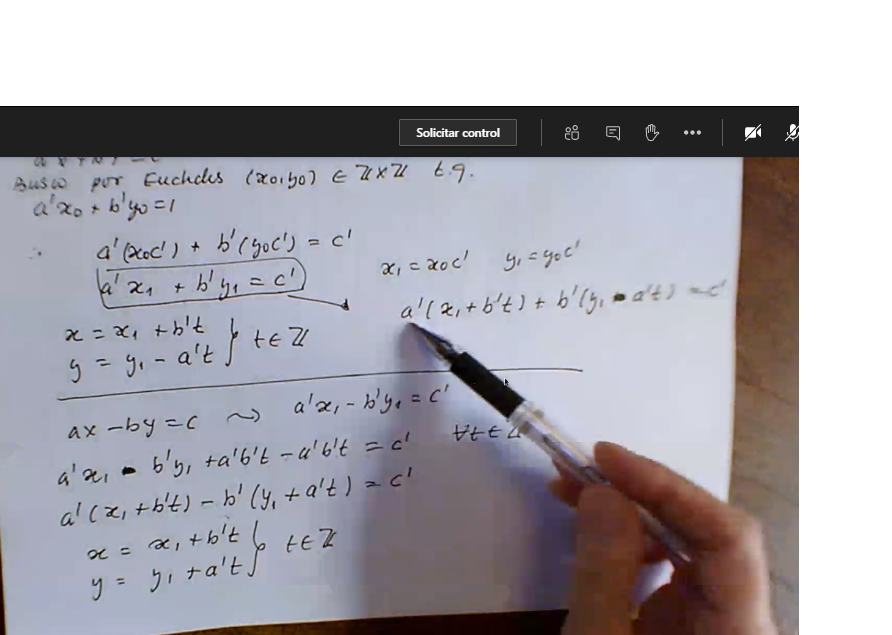 Solicitar control
Busco por Euclides (x0,y0) ∈ ℤ×ℤ t.q.
a'x0 + b'y0 = 1
∴ a'(x0c') + b'(y0c') = c'
x1 = x0c' y1 = y0c'
a'x1 + b'y1 = c'
a'(x1 + b't) + b'(y1 - a't) = c'
x = x1 + b't
y = y1 - a't } t ∈ ℤ
ax - by = c ⤳ a'x1 - b'y1 = c'
a'x1 - b'y1 + a'b't - a'b't = c' ∀t ∈ ℤ
a'(x1 + b't) - b'(y1 + a't) = c'
x = x1 + b't
y = y1 + a't } t ∈ ℤ